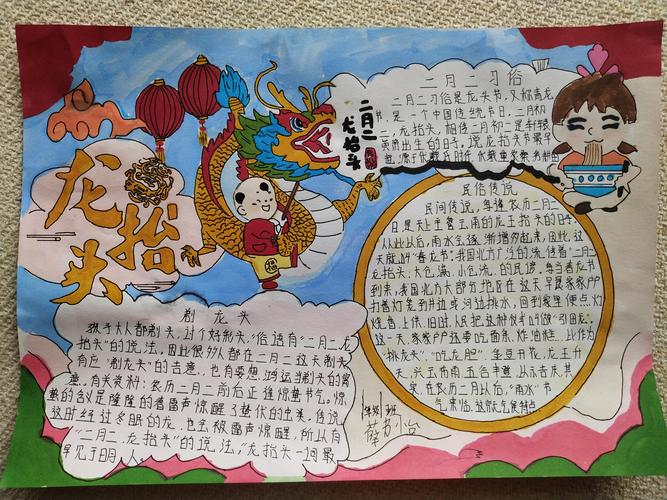 龙抬头
二月二
龙抬头
二月二习俗
二月二习俗是龙头节，又称青龙
节，是一个中国传统节日，二月初
二，龙抬头，相传二月初二是轩辕
出生的日子。说龙抬头节最早
民俗传说
民间传说，每逢农历二月二
日是天上主管云雨的龙王抬头的日子，
从此以后，雨水会逐渐增多起来，因此，这
天就叫“春龙节”。我国北方广泛的流传着“二月二
龙抬头：大仓满，小仓流”的民谚。每当春龙节
到来，我国北方大部分地区在这天早晨家家户户
打着灯笼到井边或河边挑水，回到家里便点灯
烧香、上供。旧时，人民把这种仪式叫做“引田龙”。
这一天，家家户户还要吃面条、炸油糕 比作为
“挑龙头”、“吃龙胆”
在农历二月以后，“雨水”节
气来临
剃龙头
孩子大人都剃头，讨个好彩头，“俗话有“二月二龙
抬头”的说法，因此很多人都在二月二这天剃头
有应“剃龙头”的吉意，也有要想鸿运当剃头的寓
意。有关资料：农历二月二前后正逢惊蛰节气。惊
蛰的含义是隆隆的春雷声惊醒了蛰伏的虫来。传说
这时经过冬眠的龙，也会被雷声惊醒，所以有
“二月二，龙抬头”的说法。“龙抬头”一词最
早见于明人。
班